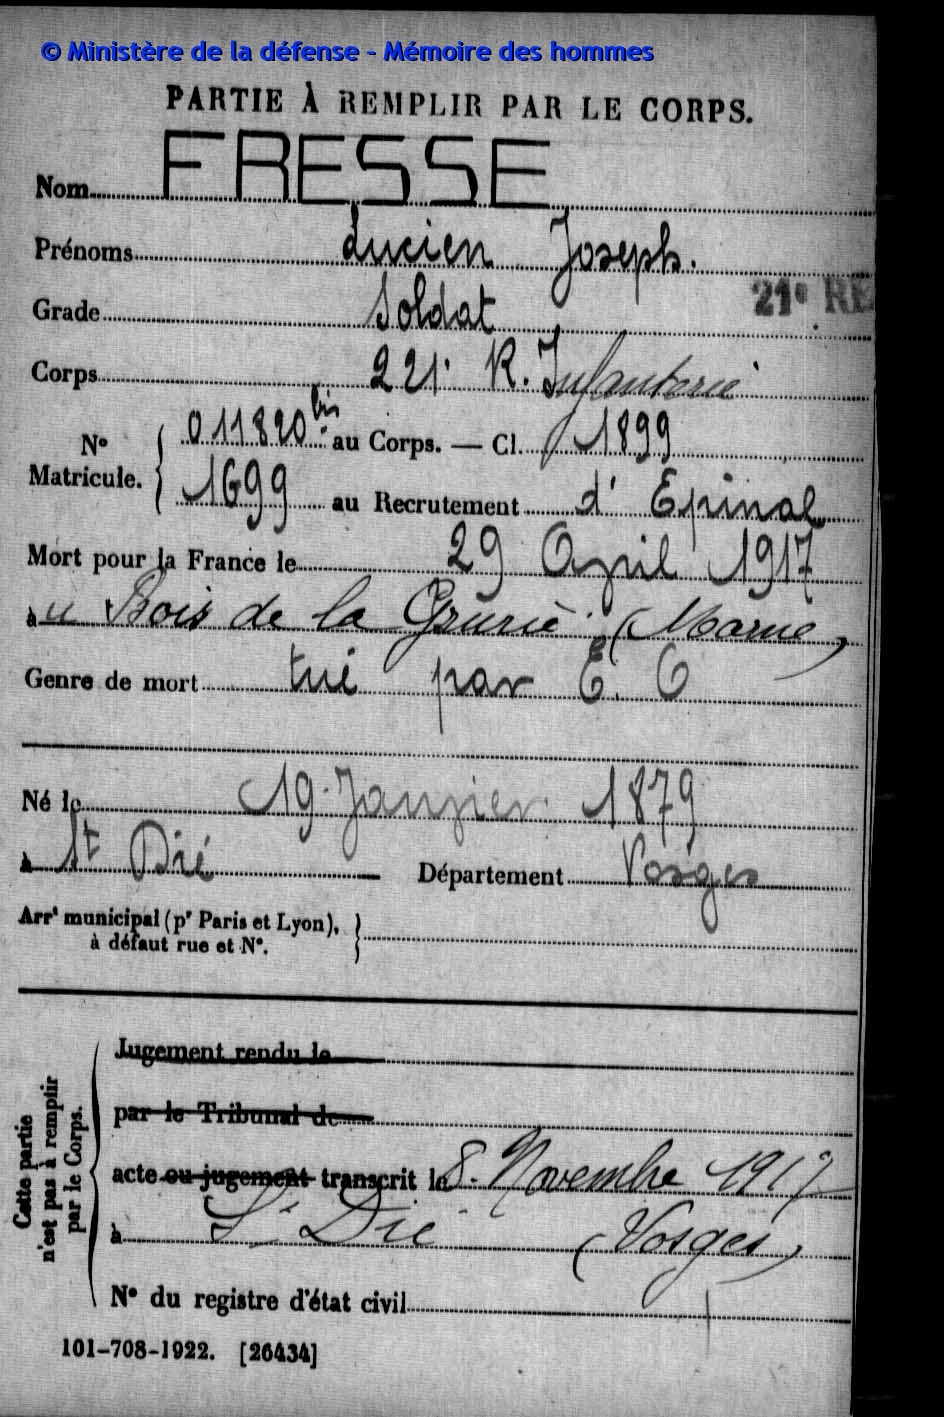 © Ministère de la défense - Mémoire des hommes
PARTIE À REMPLIR PAR LE CORPS.
Nom FRESSE
Prénoms Lucien Joseph.
21e RE
Grade Soldat
Corps 221. R. Infanterie
No Matricule. { 011820 bis au Corps. — Cl. 1899
1699 au Recrutement d'Epinal
Mort pour la France le 29 April 1917
à u Bois de la Grurie (Marne)
Genre de mort tué par E. O
Né le 19 Janvier 1879
à St Dié Département Vosges
Arrt municipal (pr Paris et Lyon), }
à défaut rue et No.
Cette partie
n'est pas à remplir
par le Corps.
Jugement rendu le
par le Tribunal de
acte ou jugement transcrit le 8. Novembre 1917
à St Dié (Vosges)
No du registre d'état civil
101-708-1922. [26434]